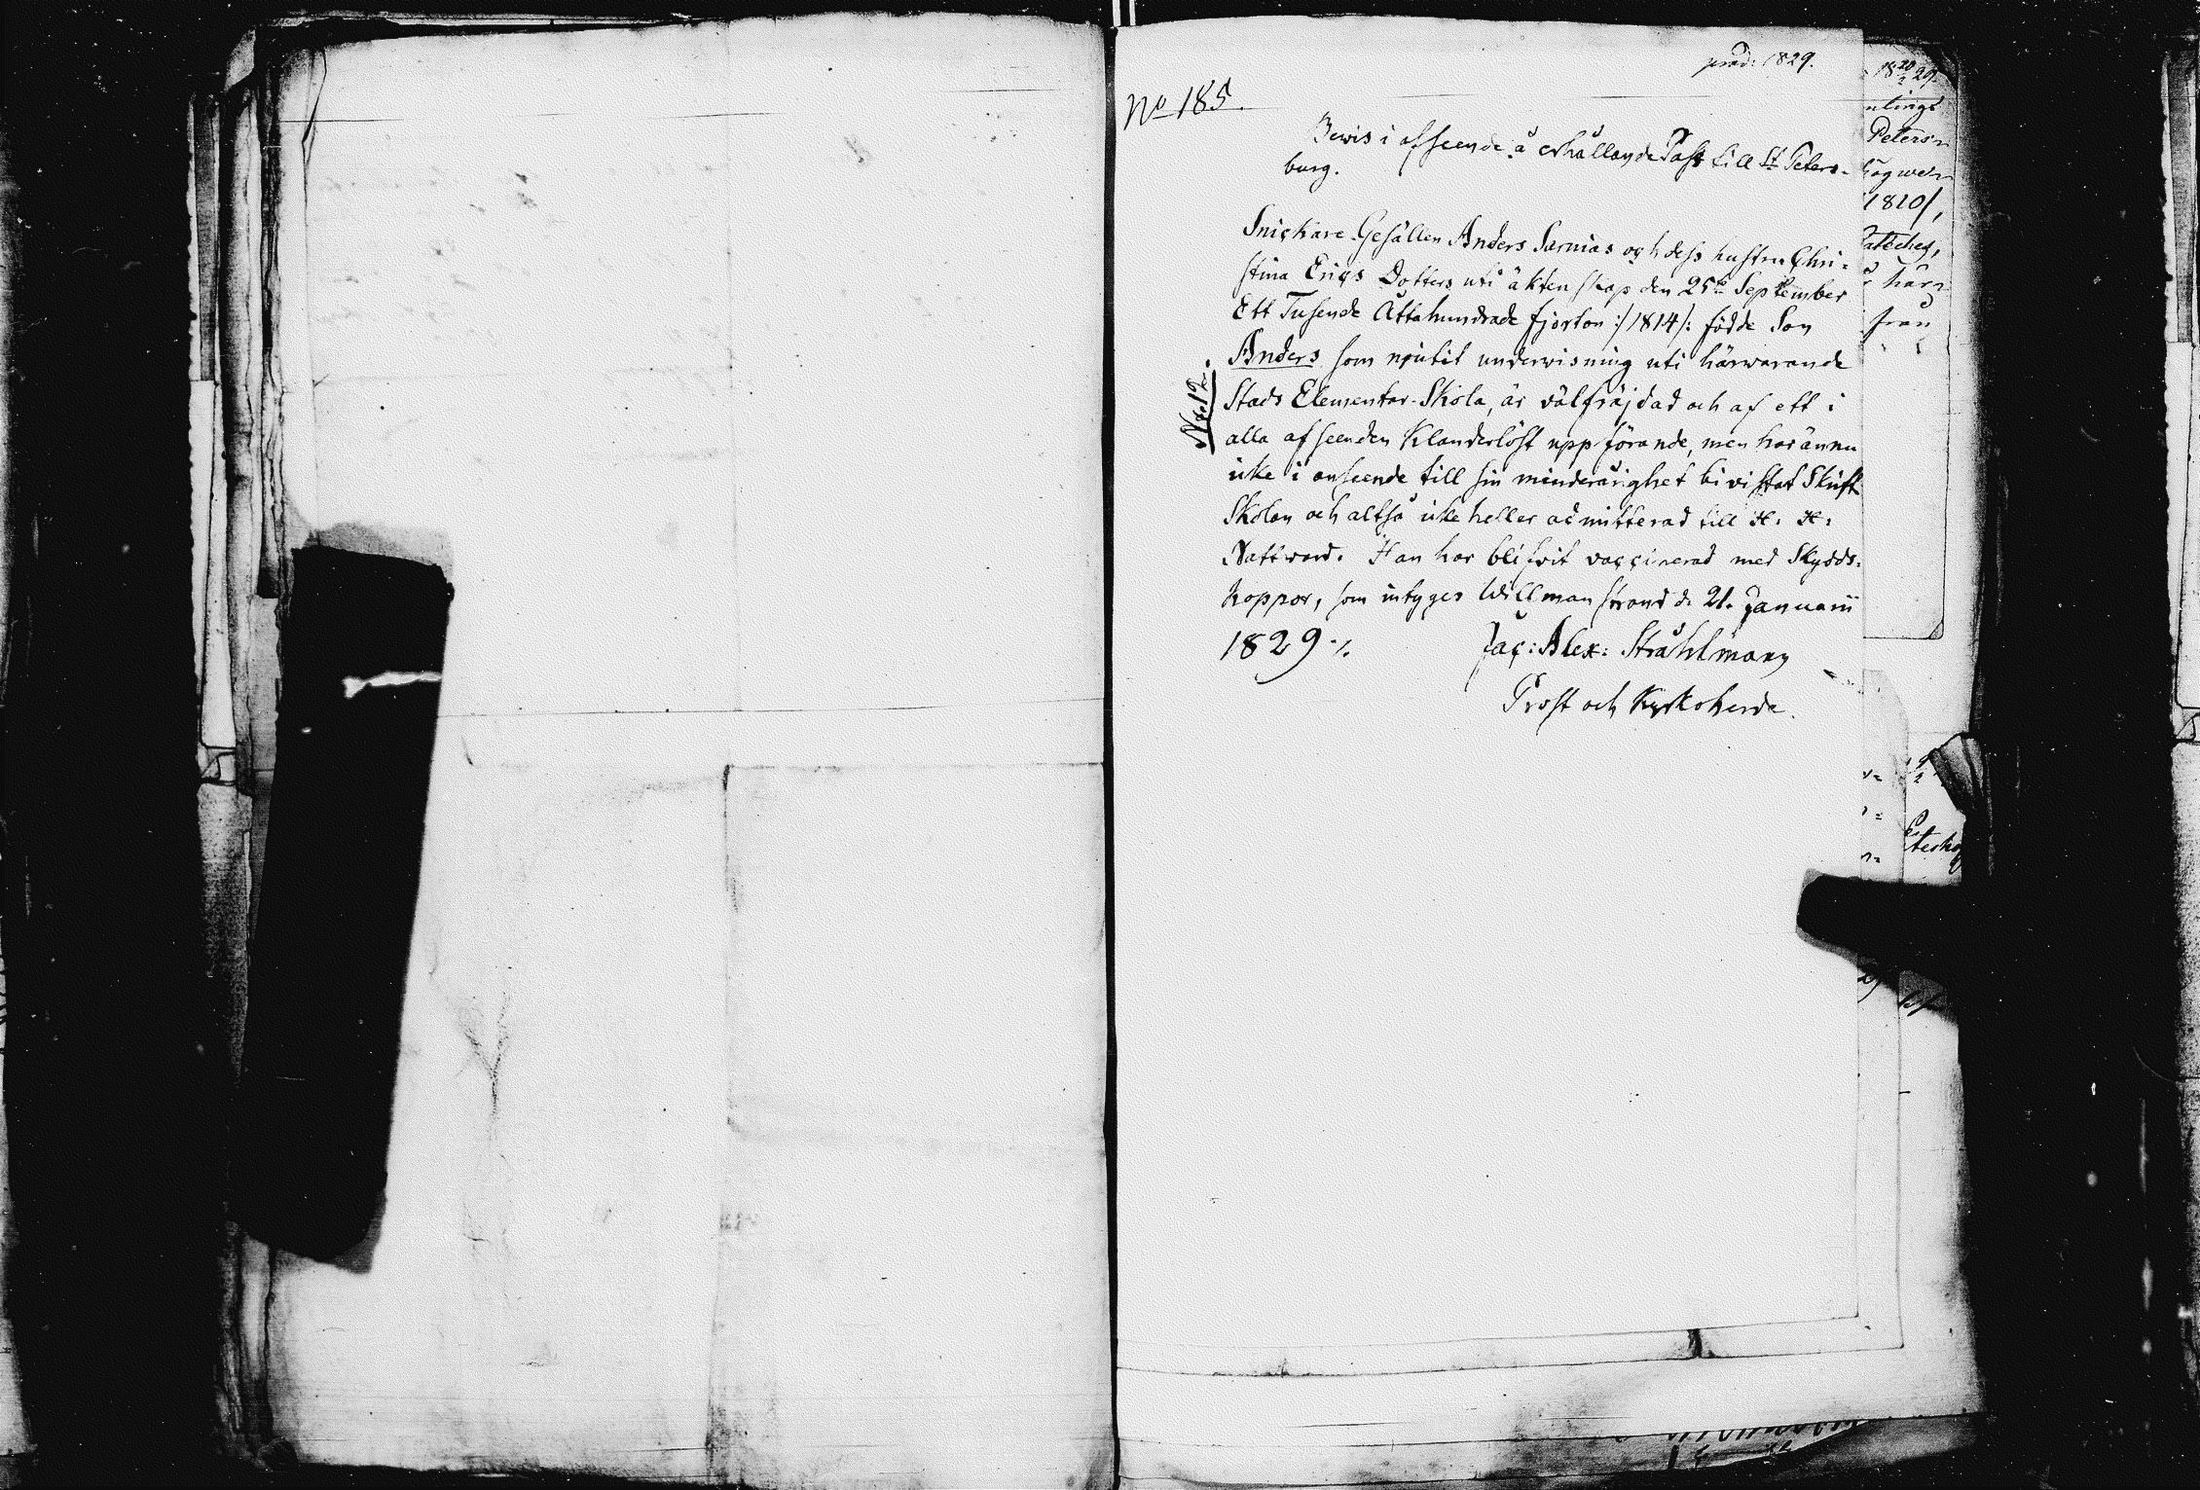 præd: 1829.
No 185.
Bewis i afseende å erhållande Pass till St Peters-
burg.
Snickare-Gesällen Anders Sarnias och dess hustru Chri-
stina Erics Dotters uti äktenskap den 25te September
Ett Tusende Åttahundrade fjorton :/1814/: födde Son
Anders som njutit underwisning uti härwarande
Stads Elementar-Skola, är välfräjdad och af ett i
alla afseenden Klanderlöst uppförande, men har ännu
icke i anseende till sin minderårighet bivistat Skrift
Skolan och altså icke heller admitterad till H. H.
Nattward. Han har blifvit vaccinerad med Skydds-
koppor, som intyges Willmanstrand d. 21. Januarii
1829 ./.
Jac: Alex: Stråhlmann
Prost och Kyrkoherde.
No. 12.
1829.
Peters=
1810/,
här=
från